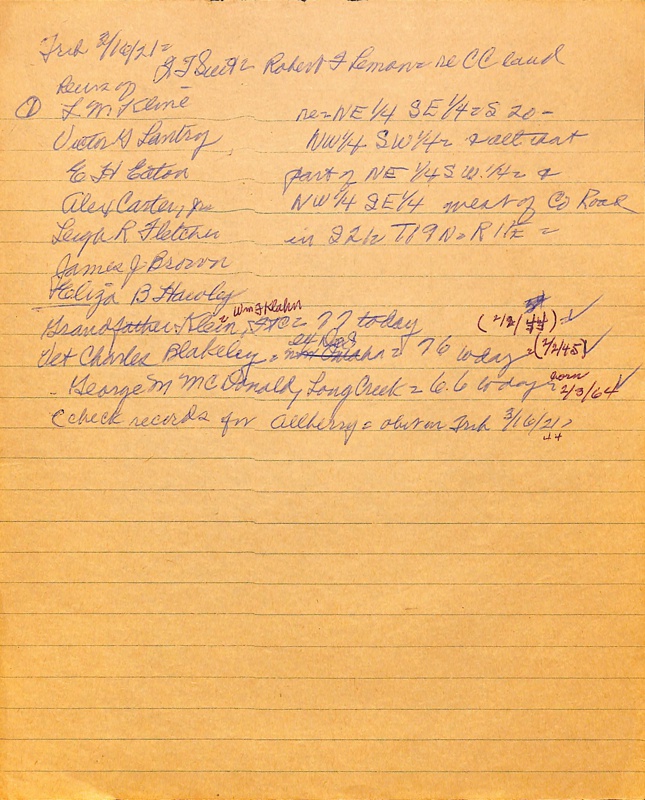 Trib 3/16/21=
J T Suit = Robert F Lemon = re CC land
Heirs of
① L. M. Kline re=NE 1/4 SE 1/4= S 20 -
Victor G Lantry NW 1/4 SW 1/4= & all that
E H Eaton part of NE 1/4 S W. 1/4= &
Alex Carter, Jr NW 1/4 SE 1/4 west of Co Road
Leigh R Fletcher in T 19 N = R 11 E =
James J Brown
Eliza B Hawley
= Wm F Klahn
Grandfather Klein, = 77 today (2/2/44)
Vet Charles Blakeley = = 76 today = (2/2/45)
George M McDonald, Long Creek = 66 today = born 2/3/64
Check records for Allberry = obit on Trib 3/16/21=
44